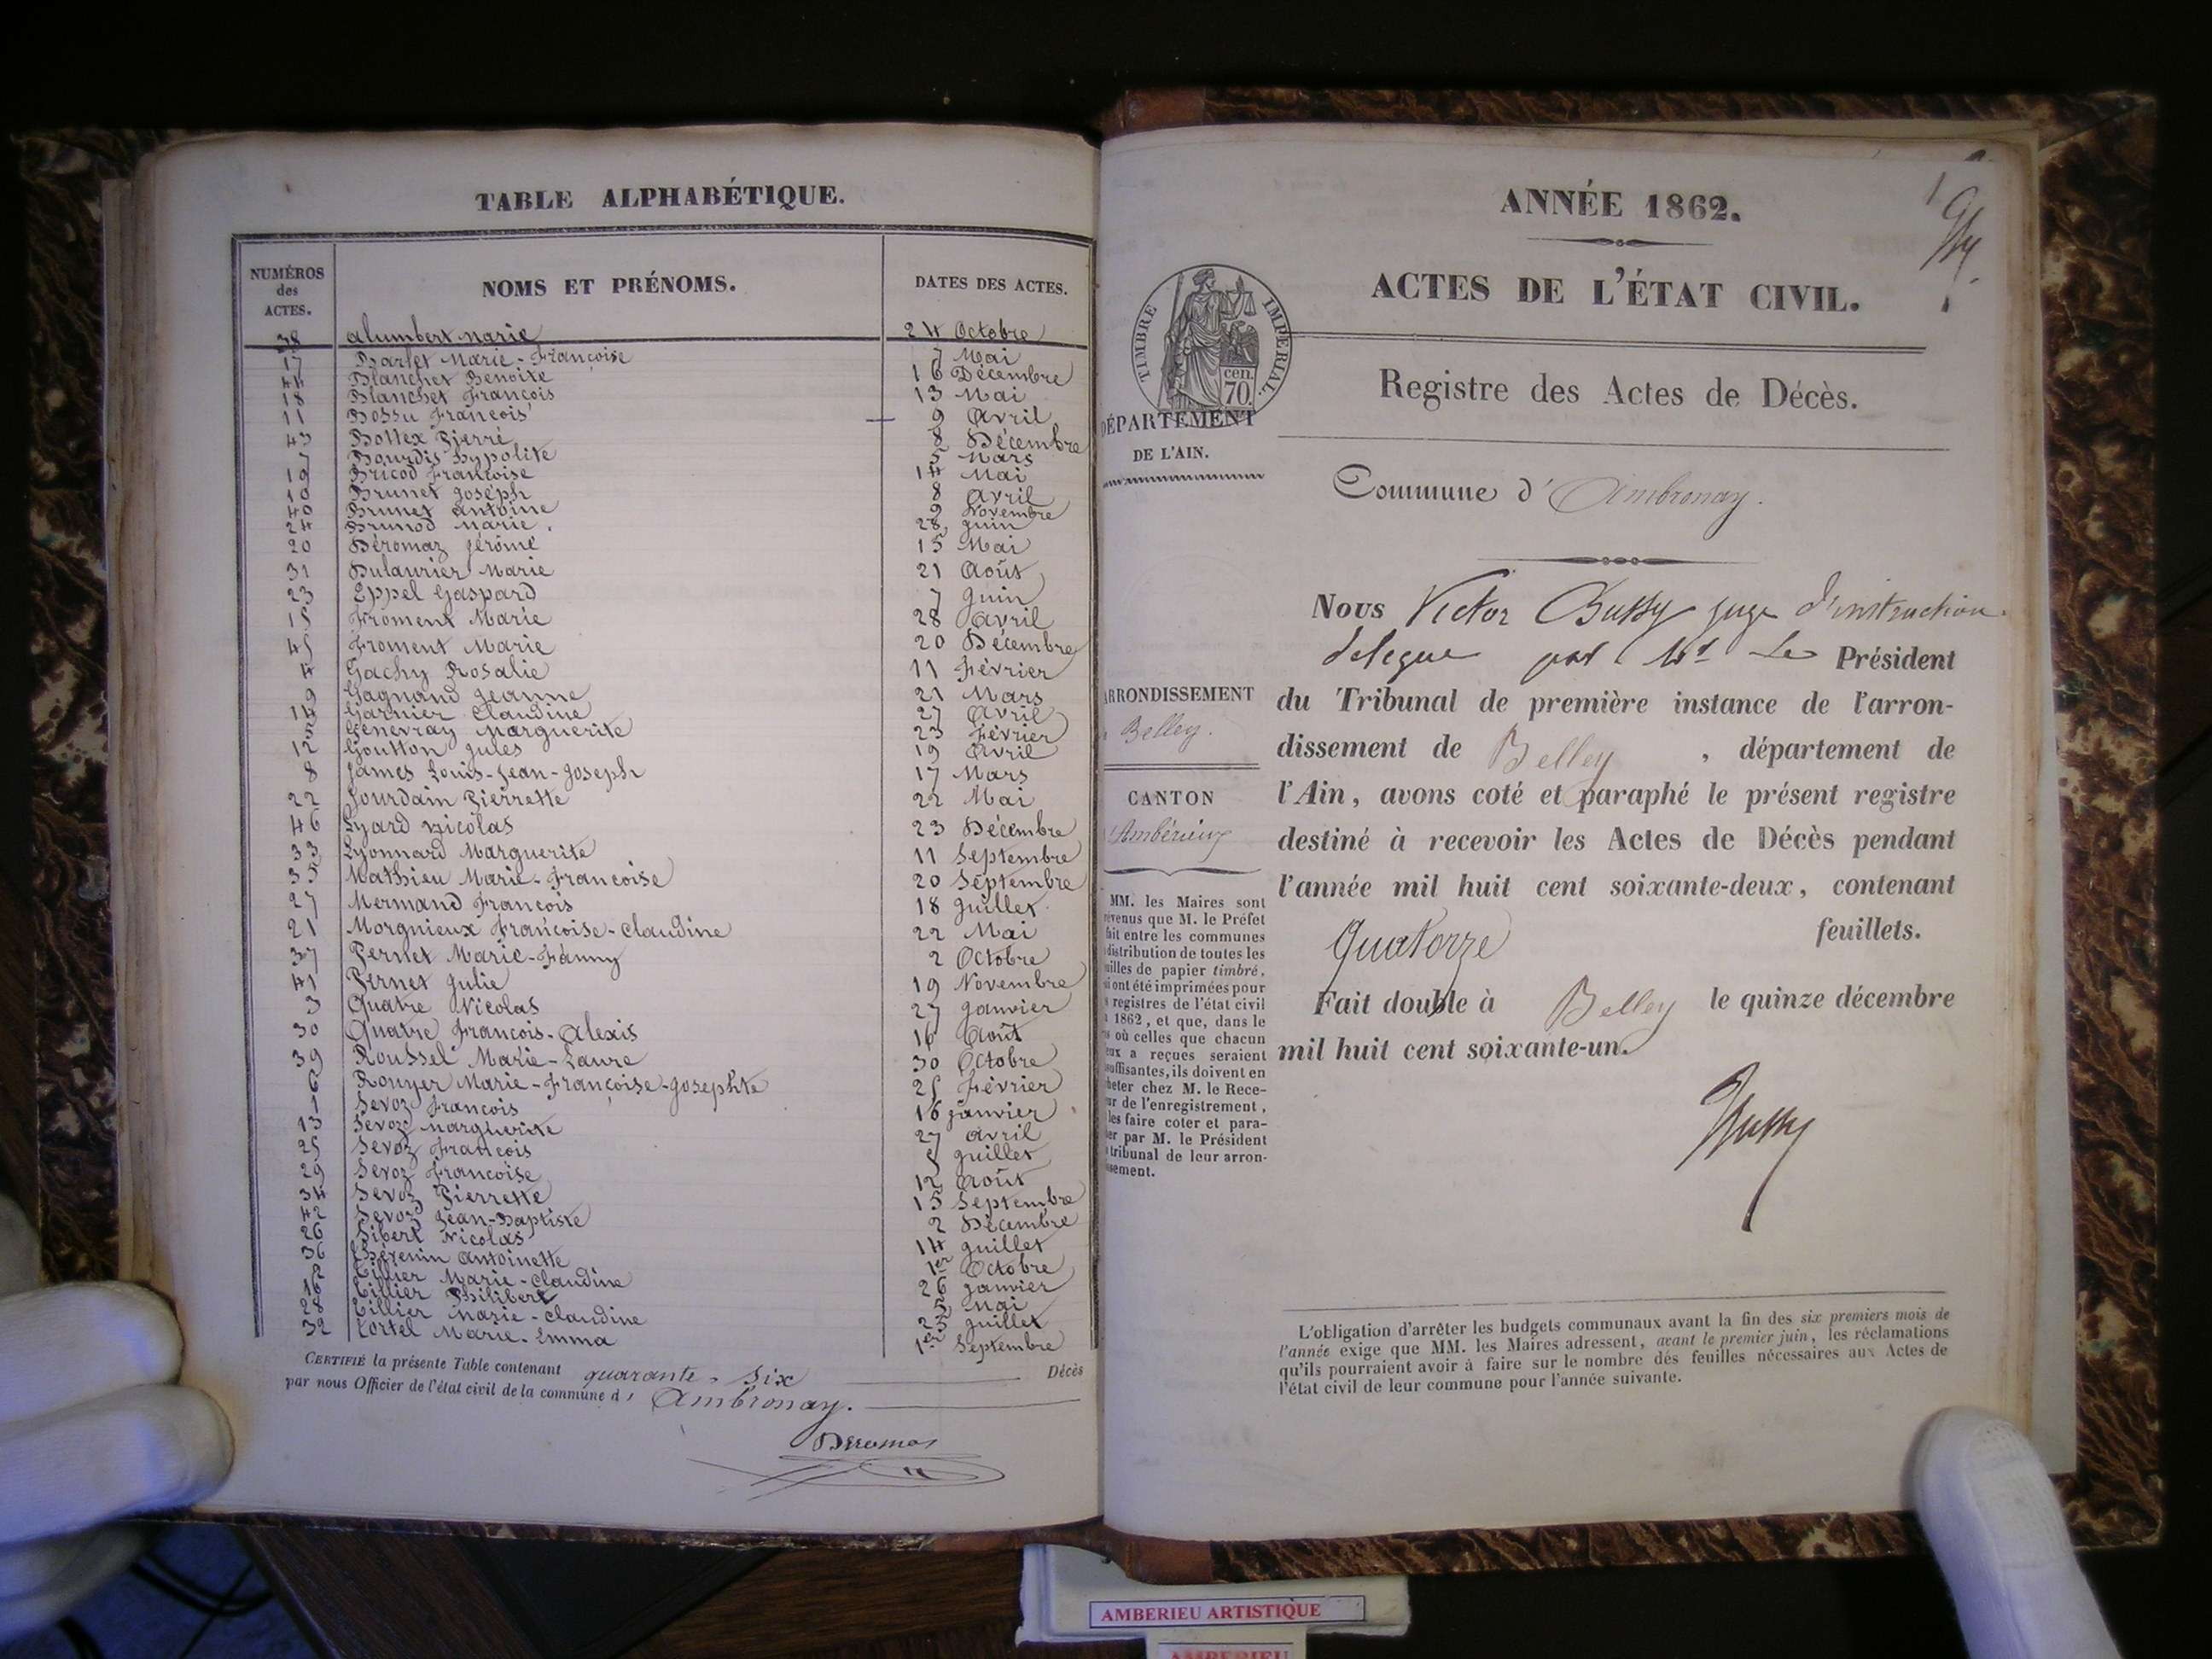 TABLE ALPHABÉTIQUE.
NUMÉROS des ACTES. NOMS ET PRÉNOMS. DATES DES ACTES.
38 Alumbert Marie 24 Octobre
17 Barlet Marie-Françoise 7 Mai
44 Blanchet Benoite 16 Décembre
18 Blanchet François 13 Mai
11 Bossu François 9 Avril
43 Bottex Pierre 8 Décembre
7 Bourdis Hypolite 5 Mars
19 Bricod Françoise 14 Mai
10 Brunet Joseph 8 Avril
40 Brunet Antoine 9 Novembre
24 Brunod Marie. 28 Juin
20 Déromaz Jérôme 15 Mai
31 Dulaurier Marie 21 Août
23 Eppel Gaspard 7 Juin
15 Froment Marie 28 Avril
45 Froment Marie 20 Décembre
4 Gachy Rosalie 11 Février
9 Gagnand Jeanne 21 Mars
14 Garnier Claudine 27 Avril
5 Genevray Marguerite 23 Février
12 Goutton Jules 19 Avril
8 James Louis-Jean-Joseph 17 Mars
22 Jourdain Pierrette 22 Mai
46 Lyard Nicolas 23 Décembre
33 Lyonnard Marguerite 11 Septembre
35 Mathieu Marie-Françoise 20 Septembre
27 Mermand François 18 Juillet
21 Morgnieux Françoise-Claudine 22 Mai
37 Pernet Marie-Fanny 2 Octobre
41 Pernet Julie 19 Novembre
3 Quatre Nicolas 27 Janvier
30 Quatre François-Alexis 16 Août
39 Roussel Marie-Laure 30 Octobre
6 Rouyer Marie-Françoise-Josephte 25 Février
1 Sevoz François 16 Janvier
13 Sevoz Marguerite 27 Avril
25 Sevoz François 5 Juillet
29 Sevoz Françoise 12 Août
34 Sevoz Pierrette 15 Septembre
42 Sevoz Jean-Baptiste 2 Décembre
26 Sibert Nicolas 14 Juillet
36 Thévenin Antoinette 1er Octobre
2 Tillier Marie-Claudine 26 Janvier
16 Tillier Philibert 5 Mai
28 Tillier Marie-Claudine 23 Juillet
32 Tortel Marie-Emma 1er Septembre
CERTIFIÉ la présente Table contenant quarante-six Décès
par nous Officier de l'état civil de la commune d' Ambronay.
Déromas
ANNÉE 1862.
ACTES DE L'ÉTAT CIVIL.
TIMBRE IMPÉRIAL.
cen. 70.
Registre des Actes de Décès.
DÉPARTEMENT
DE L'AIN.
Commune d'Ambronay.
Nous Victor Bussy juge d'instruction
délégué par Mr Le Président
du Tribunal de première instance de l'arron-
dissement de Belley, département de
l'Ain, avons coté et paraphé le présent registre
destiné à recevoir les Actes de Décès pendant
l'année mil huit cent soixante-deux, contenant
Quatorze feuillets.
Fait double à Belley le quinze décembre
mil huit cent soixante-un.
Bussy
ARRONDISSEMENT
Belley.
CANTON
d'Ambérieux
MM. les Maires sont
prévenus que M. le Préfet
fait entre les communes
distribution de toutes les
feuilles de papier timbré,
qui ont été imprimées pour
registres de l'état civil
1862, et que, dans le
cas où celles que chacun
d'eux a reçues seraient
insuffisantes, ils doivent en
acheter chez M. le Rece-
veur de l'enregistrement,
les faire coter et para-
pher par M. le Président
tribunal de leur arron-
dissement.
L'obligation d'arrêter les budgets communaux avant la fin des six premiers mois de
l'année exige que MM. les Maires adressent, avant le premier juin, les réclamations
qu'ils pourraient avoir à faire sur le nombre des feuilles nécessaires aux Actes de
l'état civil de leur commune pour l'année suivante.
AMBERIEU ARTISTIQUE
AMBERIEU